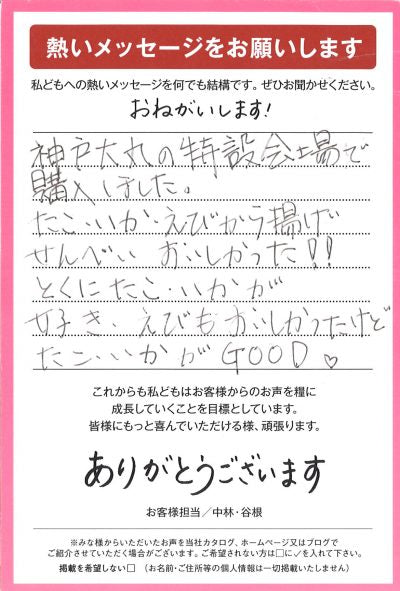 熱いメッセージをお願いします
私どもへの熱いメッセージを何でも結構です。ぜひお聞かせください。
おねがいします!
神戸大丸の特設会場で
購入しました。
たこ・いか・えびから揚げ
せんべい おいしかった!!
とくにたこ・いかが
好き、えびもおいしかったけど
たこ・いかがGOOD♡
これからも私どもはお客様からのお声を糧に
成長していくことを目標としています。
皆様にもっと喜んでいただける様、頑張ります。
ありがとうございます
お客様担当／中林・谷根
※みな様からいただいたお声を当社カタログ、ホームページ又はブログで
ご紹介させていただく場合がございます。ご希望されない方は□に✓を入れて下さい。
掲載を希望しない□ （お名前・ご住所等の個人情報は一切掲載いたしません）